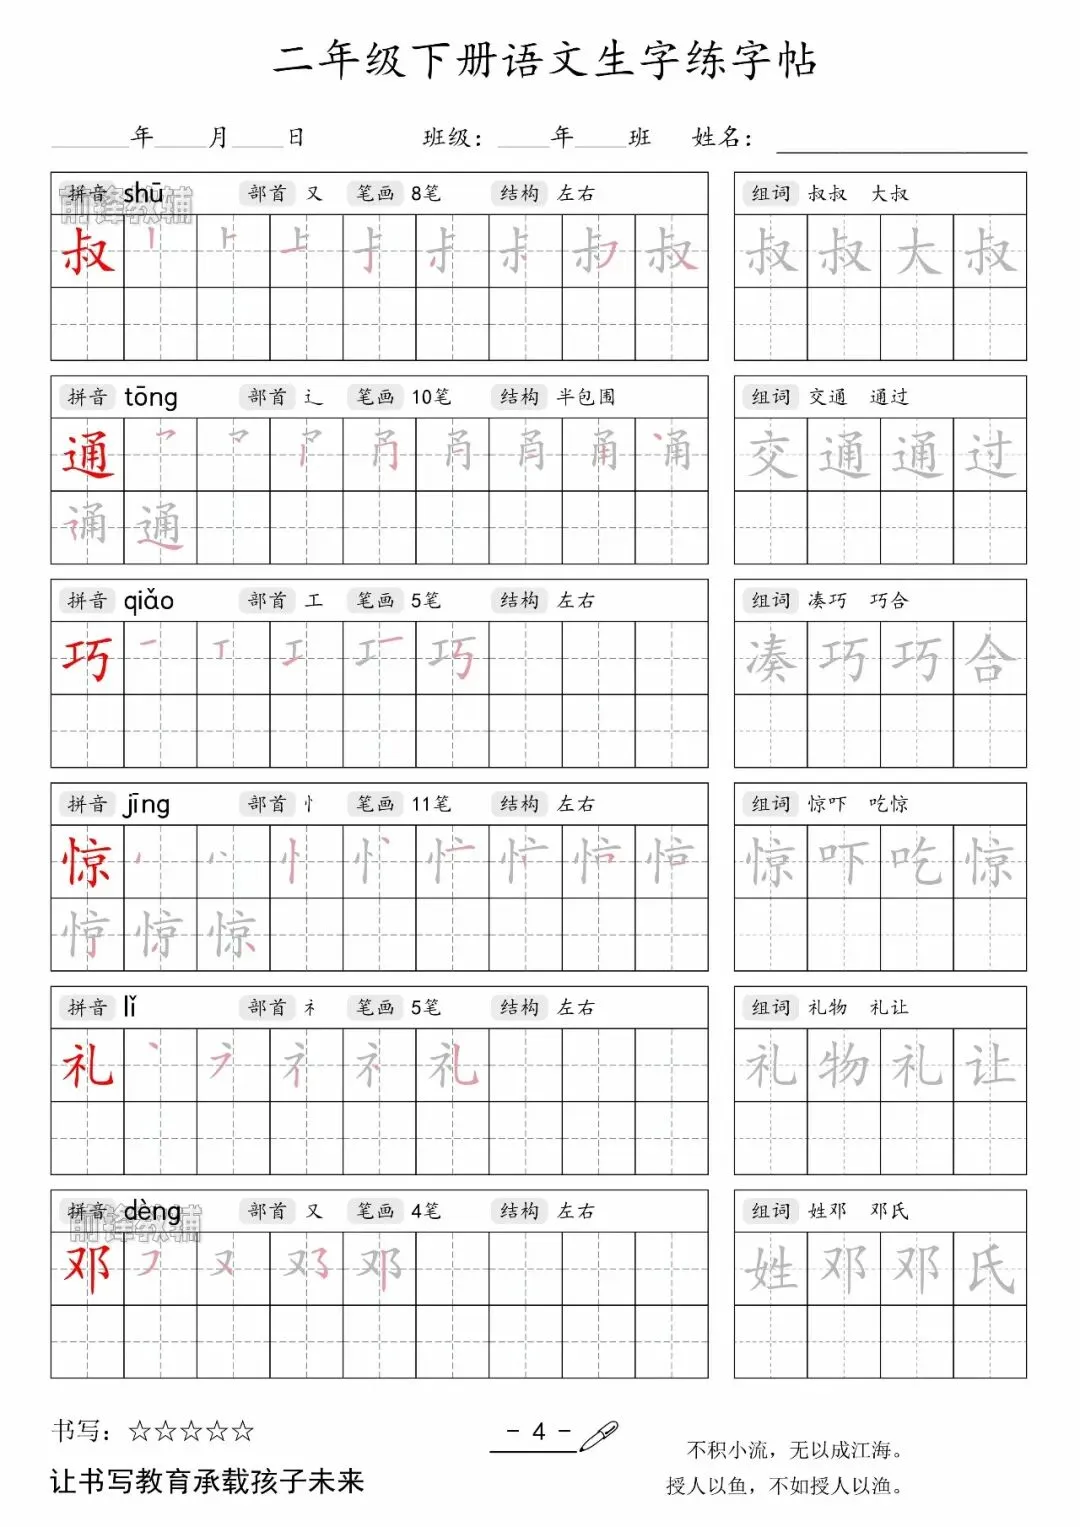 二年级下册语文生字练字帖
年 月 日 班级： 年 班 姓名：
前锋教辅
拼音 shū 部首 又 笔画 8笔 结构 左右 组词 叔叔 大叔
叔 叔 叔 叔 大 叔
拼音 tōng 部首 辶 笔画 10笔 结构 半包围 组词 交通 通过
通 甬 甬 交 通 通 过
通
拼音 qiǎo 部首 工 笔画 5笔 结构 左右 组词 凑巧 巧合
巧 巧 凑 巧 巧 合
拼音 jīng 部首 忄 笔画 11笔 结构 左右 组词 惊吓 吃惊
惊 惊 吓 吃 惊
惊
拼音 lǐ 部首 礻 笔画 5笔 结构 左右 组词 礼物 礼让
礼 礻 礼 礼 物 礼 让
前锋教辅
拼音 dèng 部首 又 笔画 4笔 结构 左右 组词 姓邓 邓氏
邓 又 邓 姓 邓 邓 氏
书写：☆☆☆☆☆
- 4 -
不积小流，无以成江海。
让书写教育承载孩子未来
授人以鱼，不如授人以渔。